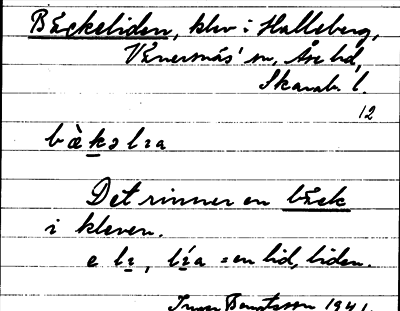 Bäckeliden, klev i Halleberg,
Vänersnäs' sn, Åse hd,
Skarab. l.
12
bàkəlıa
Det rinner en bäck
i kleven.
e lı, lıa = en lid, liden.
1941.